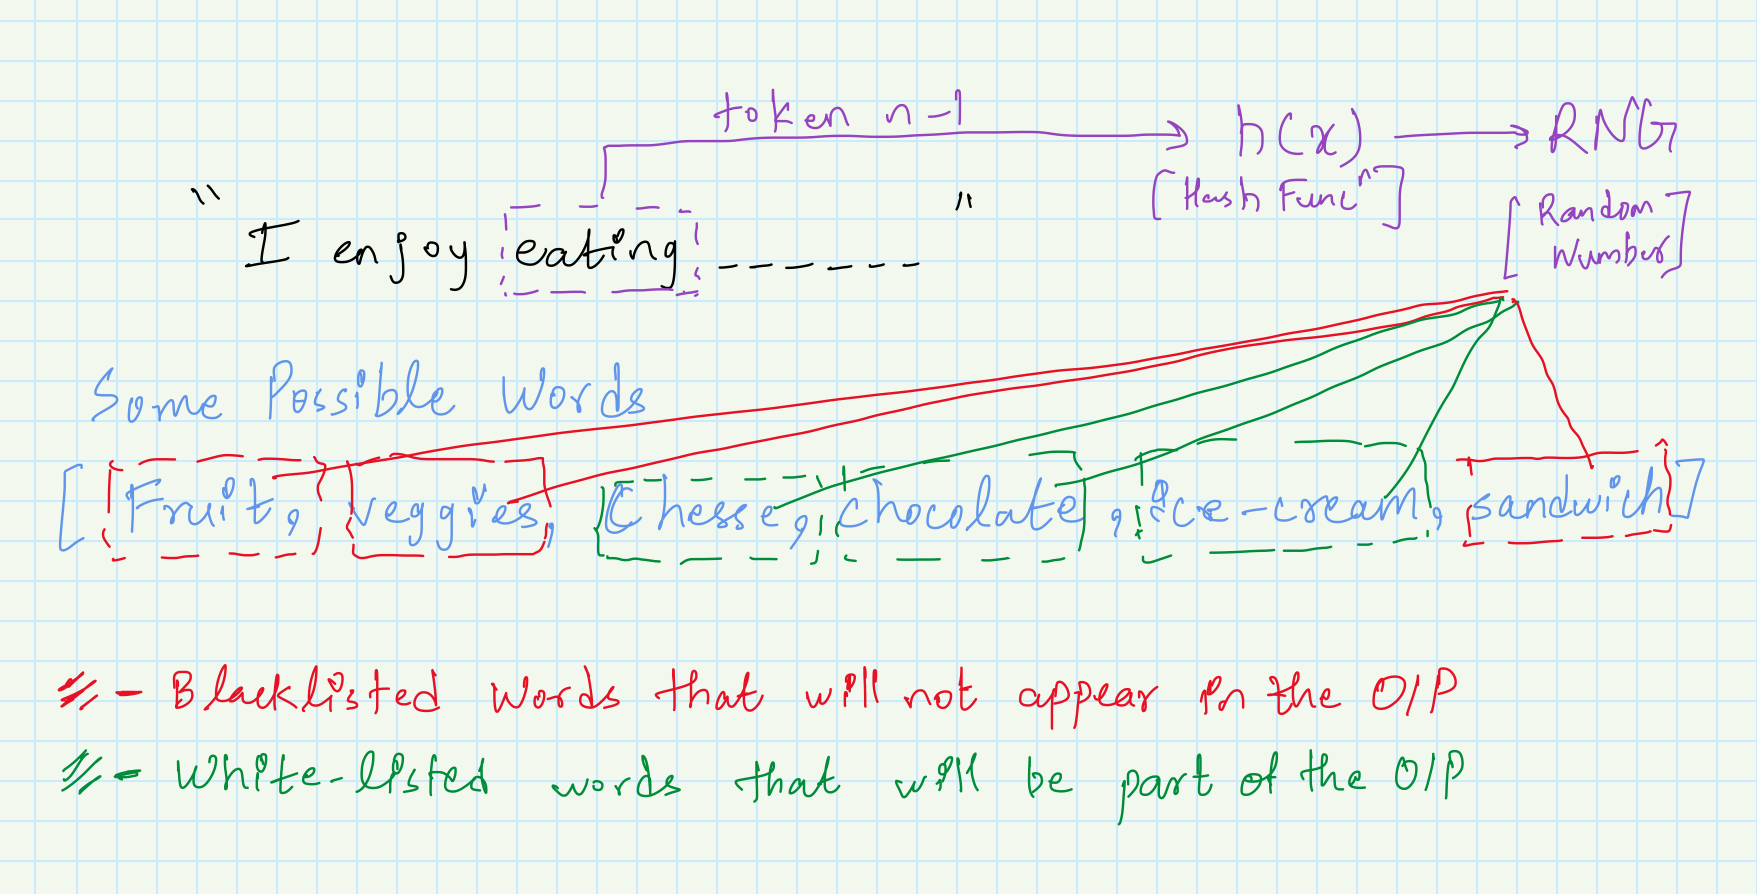 token n-1
h(x)
RNG
[Hash Funcⁿ]
[Random
Number]
"I enjoy eating -------"
Some Possible Words
[Fruit, veggies, Chesse, chocolate, ice-cream, sandwich]
- Blacklisted words that will not appear in the O/P
- White-listed words that will be part of the O/P